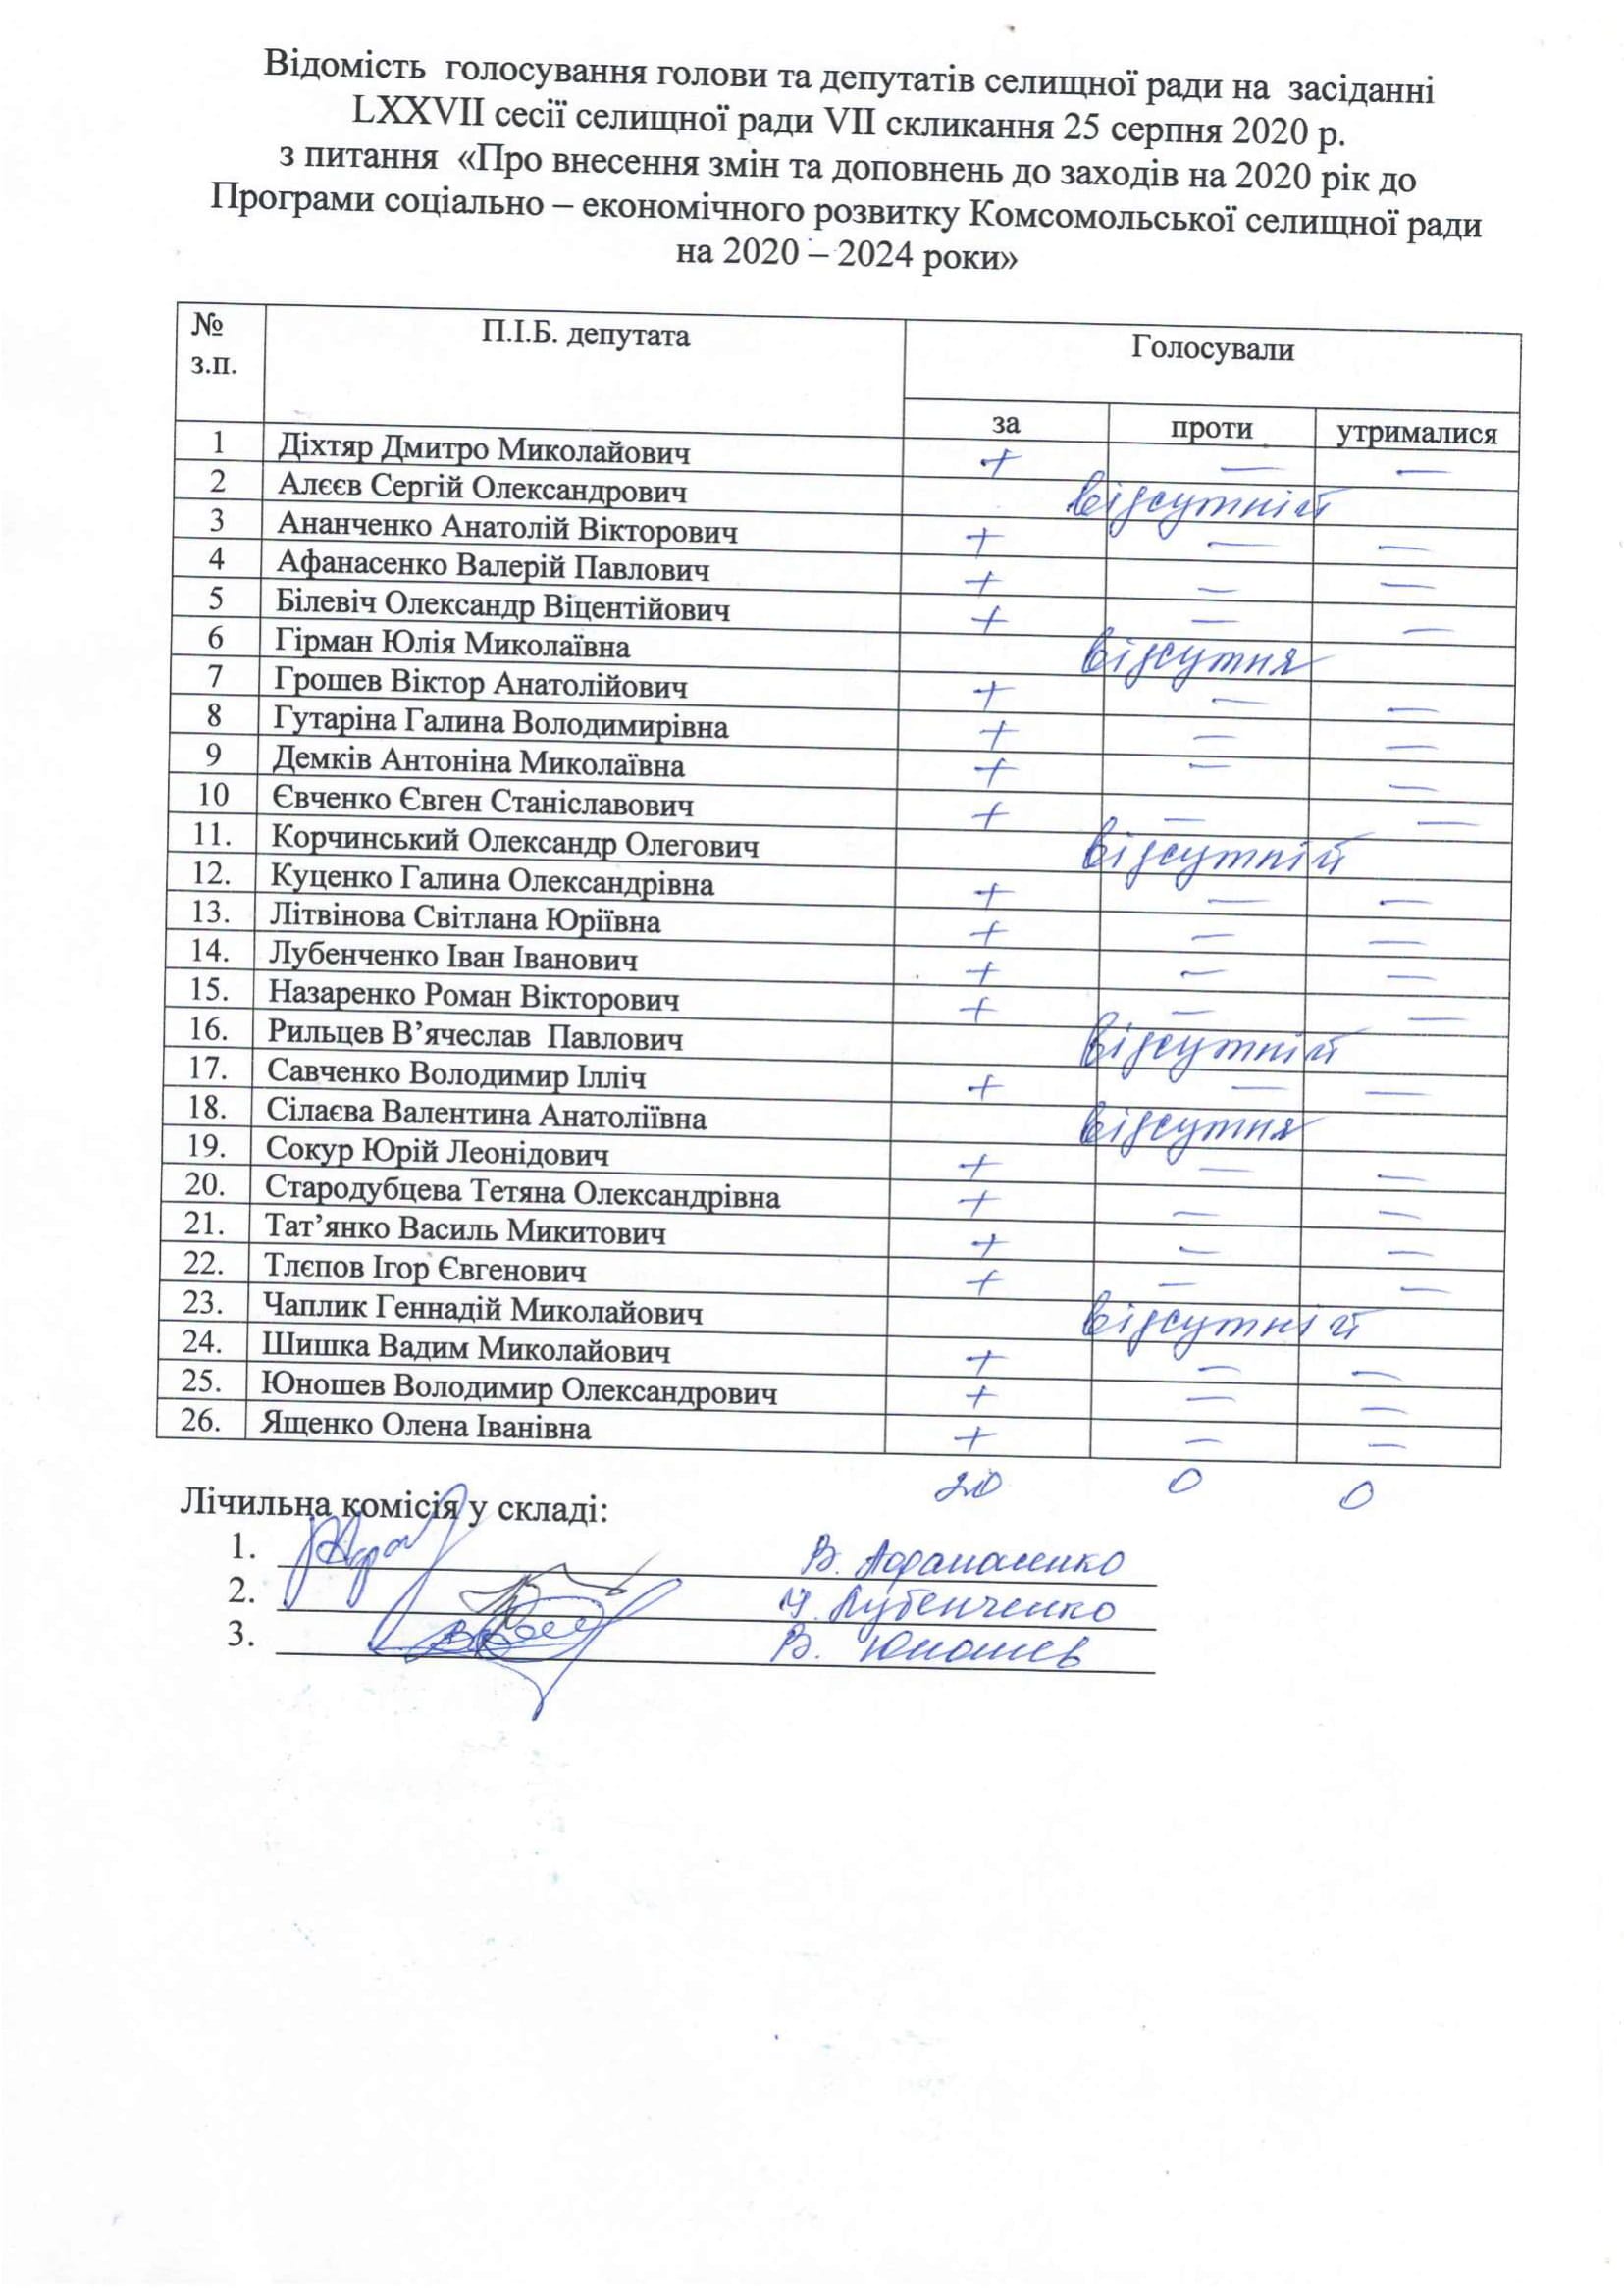 Відомість голосування голови та депутатів селищної ради на засіданні
LXXVII сесії селищної ради VII скликання 25 серпня 2020 р.
з питання «Про внесення змін та доповнень до заходів на 2020 рік до
Програми соціально – економічного розвитку Комсомольської селищної ради
на 2020 – 2024 роки»
№ з.п. П.І.Б. депутата Голосували
за проти утрималися
1 Діхтяр Дмитро Миколайович + — —
2 Алєєв Сергій Олександрович відсутній
3 Ананченко Анатолій Вікторович + — —
4 Афанасенко Валерій Павлович + — —
5 Білевіч Олександр Віцентійович + — —
6 Гірман Юлія Миколаївна відсутня
7 Грошев Віктор Анатолійович + — —
8 Гутаріна Галина Володимирівна + — —
9 Демків Антоніна Миколаївна + — —
10 Євченко Євген Станіславович + — —
11. Корчинський Олександр Олегович відсутній
12. Куценко Галина Олександрівна + — —
13. Літвінова Світлана Юріївна + — —
14. Лубенченко Іван Іванович + — —
15. Назаренко Роман Вікторович + — —
16. Рильцев В’ячеслав Павлович відсутній
17. Савченко Володимир Ілліч + — —
18. Сілаєва Валентина Анатоліївна відсутня
19. Сокур Юрій Леонідович + — —
20. Стародубцева Тетяна Олександрівна + — —
21. Тат’янко Василь Микитович + — —
22. Тлєпов Ігор Євгенович + — —
23. Чаплик Геннадій Миколайович відсутній
24. Шишка Вадим Миколайович + — —
25. Юношев Володимир Олександрович + — —
26. Ященко Олена Іванівна + — —
20 0 0
Лічильна комісія у складі:
1. В. Афанасенко
2. І. Лубенченко
3. В. Юношев